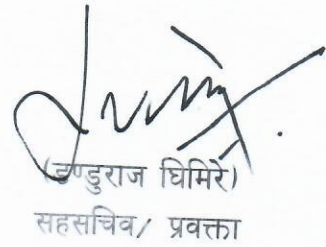 (डण्डुराज घिमिरे)
सहसचिव/ प्रवक्ता